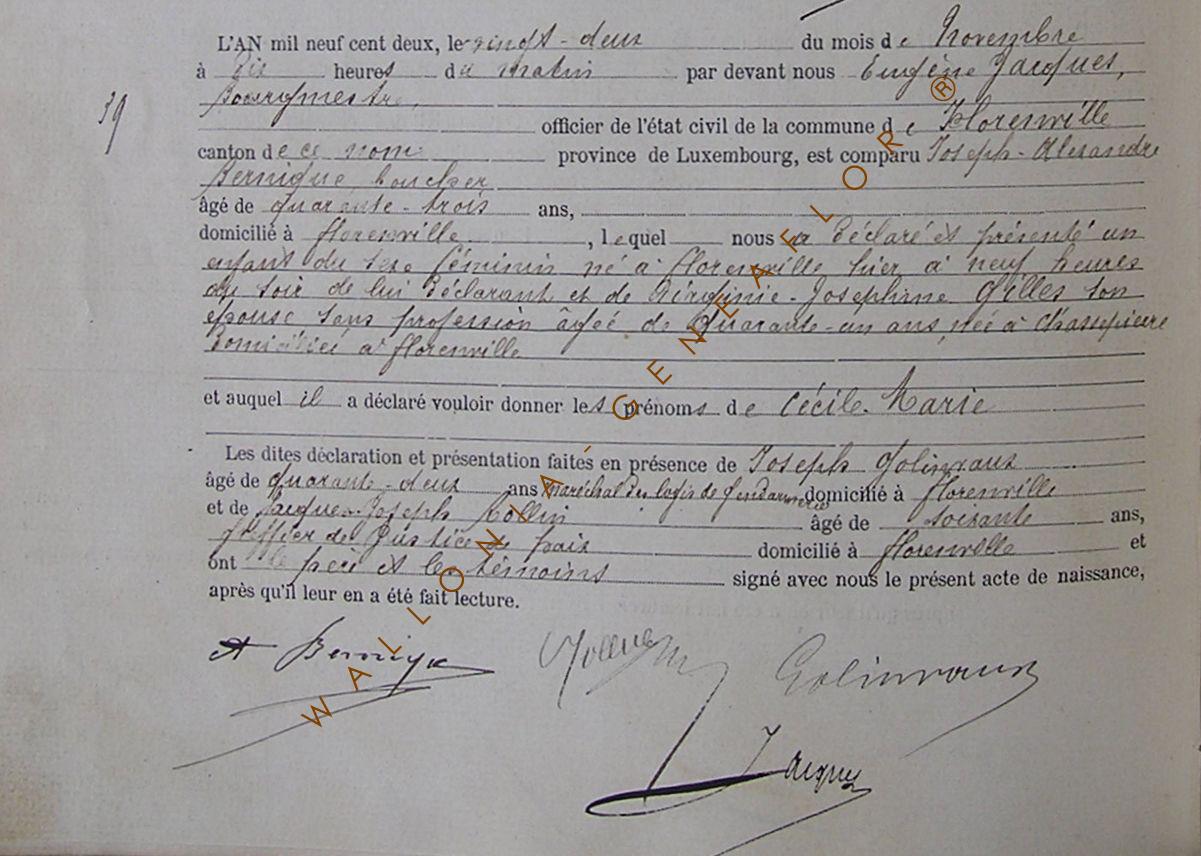 L'AN mil neuf cent deux, le vingt-deux du mois de Novembre
à dix heures du matin par devant nous Eugène Jacques,
Bourgmestre,
39
officier de l'état civil de la commune de Florenville
canton de ce nom province de Luxembourg, est comparu Joseph-Alexandre
Bernique, boucher
âgé de quarante-trois ans,
domicilié à Florenville, lequel nous a déclaré et présenté un
enfant du sexe féminin né à Florenville hier à neuf heures
du soir de lui déclarant et de Virginie-Josephine Gilles son
épouse sans profession âgée de quarante-un ans, née à Chassepierre
domiciliée à Florenville
et auquel il a déclaré vouloir donner les prénoms de Cécile-Marie
Les dites déclaration et présentation faites en présence de Joseph Golinvaux
âgé de quarante-deux ans Maréchal des logis de gendarmerie domicilié à Florenville
et de Jacques-Joseph Rollin âgé de soixante ans,
greffier de Justice de paix domicilié à Florenville et
ont le père et les témoins signé avec nous le présent acte de naissance,
après qu'il leur en a été fait lecture.
A Bernique Golinvaux
Jacques
WALLONIA - GENEAFLOR ®